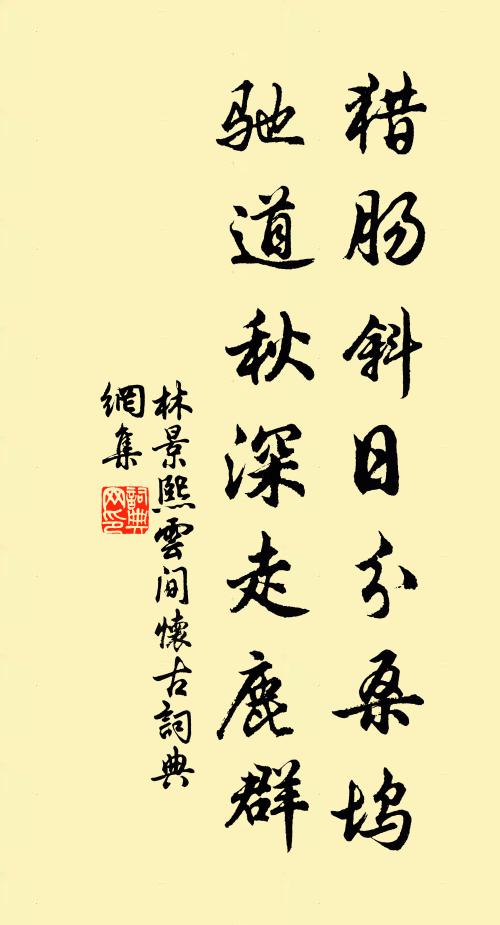 猎肠斜日分桑坞
驰道秋深走鹿群
林景熙雲间懷古詞典
網集
詞典
网印